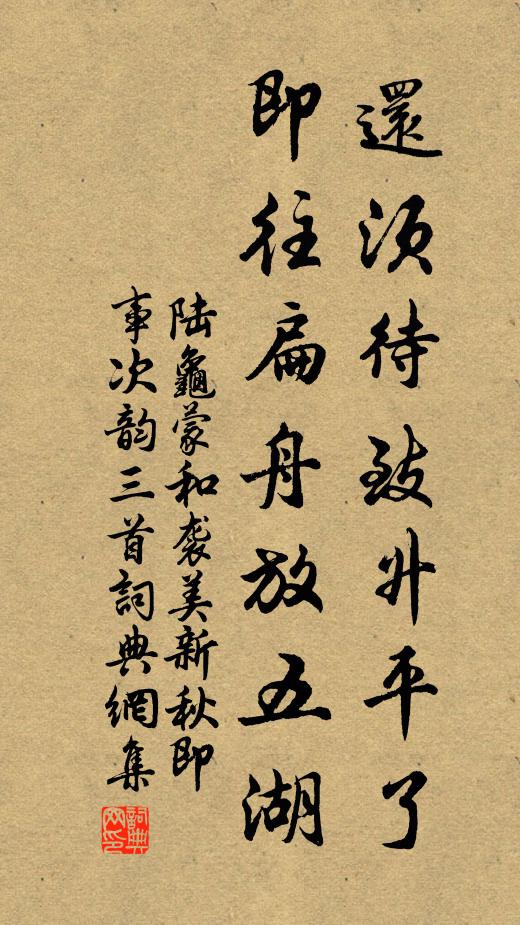 還須待致升平了
即往扁舟放五湖
陆龜蒙和袭美新秋即
事次韵三首詞典網集
詞典
网印